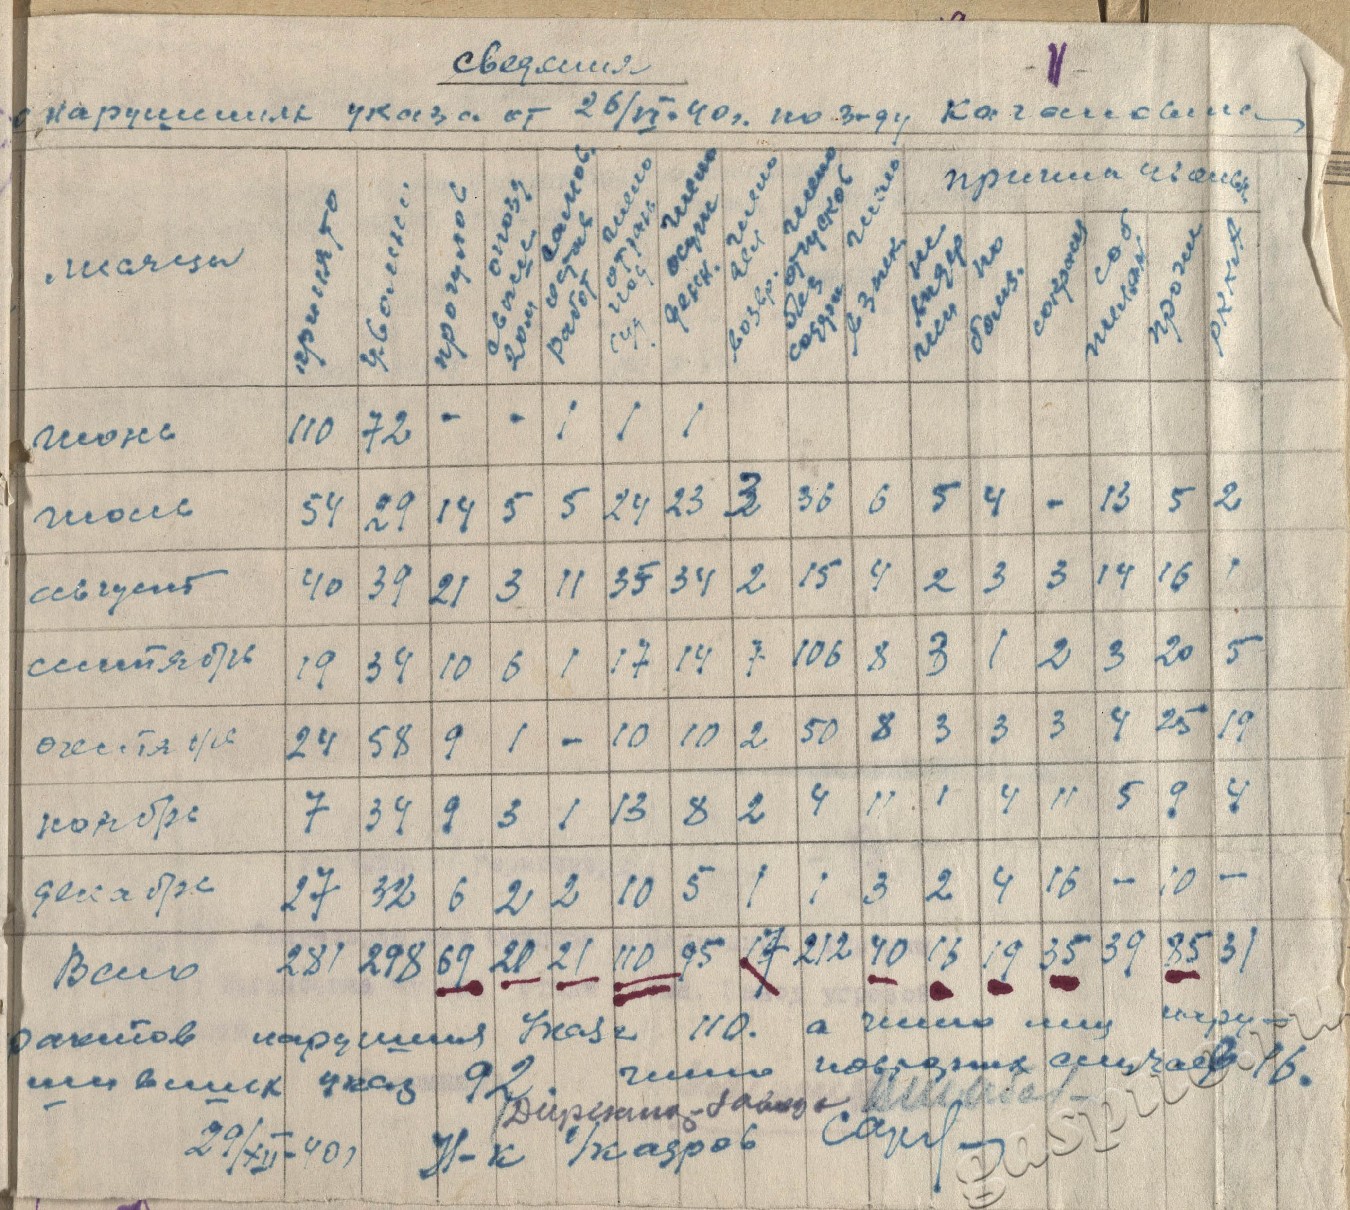 сведения
о нарушениях указа от 26/VI-40г. по з-ду Кагановича
месяцы принято уволено прогулов опозд. самов. остав. работ число отдан. под суд число осужден. число дел возвр. число отпусков без содерж. число взыск.
причина увольн.
по болез. сокращ. соб. желан. прочи РККА
июнь 110 72 - - 1 1 1
июль 54 29 14 5 5 24 23 3 36 6 5 4 - 13 5 2
август 40 39 21 3 11 35 34 2 15 4 2 3 3 14 16 1
сентябрь 19 34 10 6 1 17 14 7 106 8 3 1 2 3 20 5
октябрь 24 58 9 1 - 10 10 2 50 8 3 3 3 4 25 19
ноябрь 7 34 9 3 1 13 8 2 4 11 1 4 11 5 9 4
декабрь 27 32 6 2 2 10 5 1 1 3 2 4 16 - 10 -
Всего 281 298 69 20 21 110 95 17 212 40 16 19 35 39 85 31
фактов нарушения Указа 110. а число лиц нару-
шивших указ 92. число повторных случаев 16.
Директор з-да
29/XII-40г Н-к О/кадров
gaspiro.ru